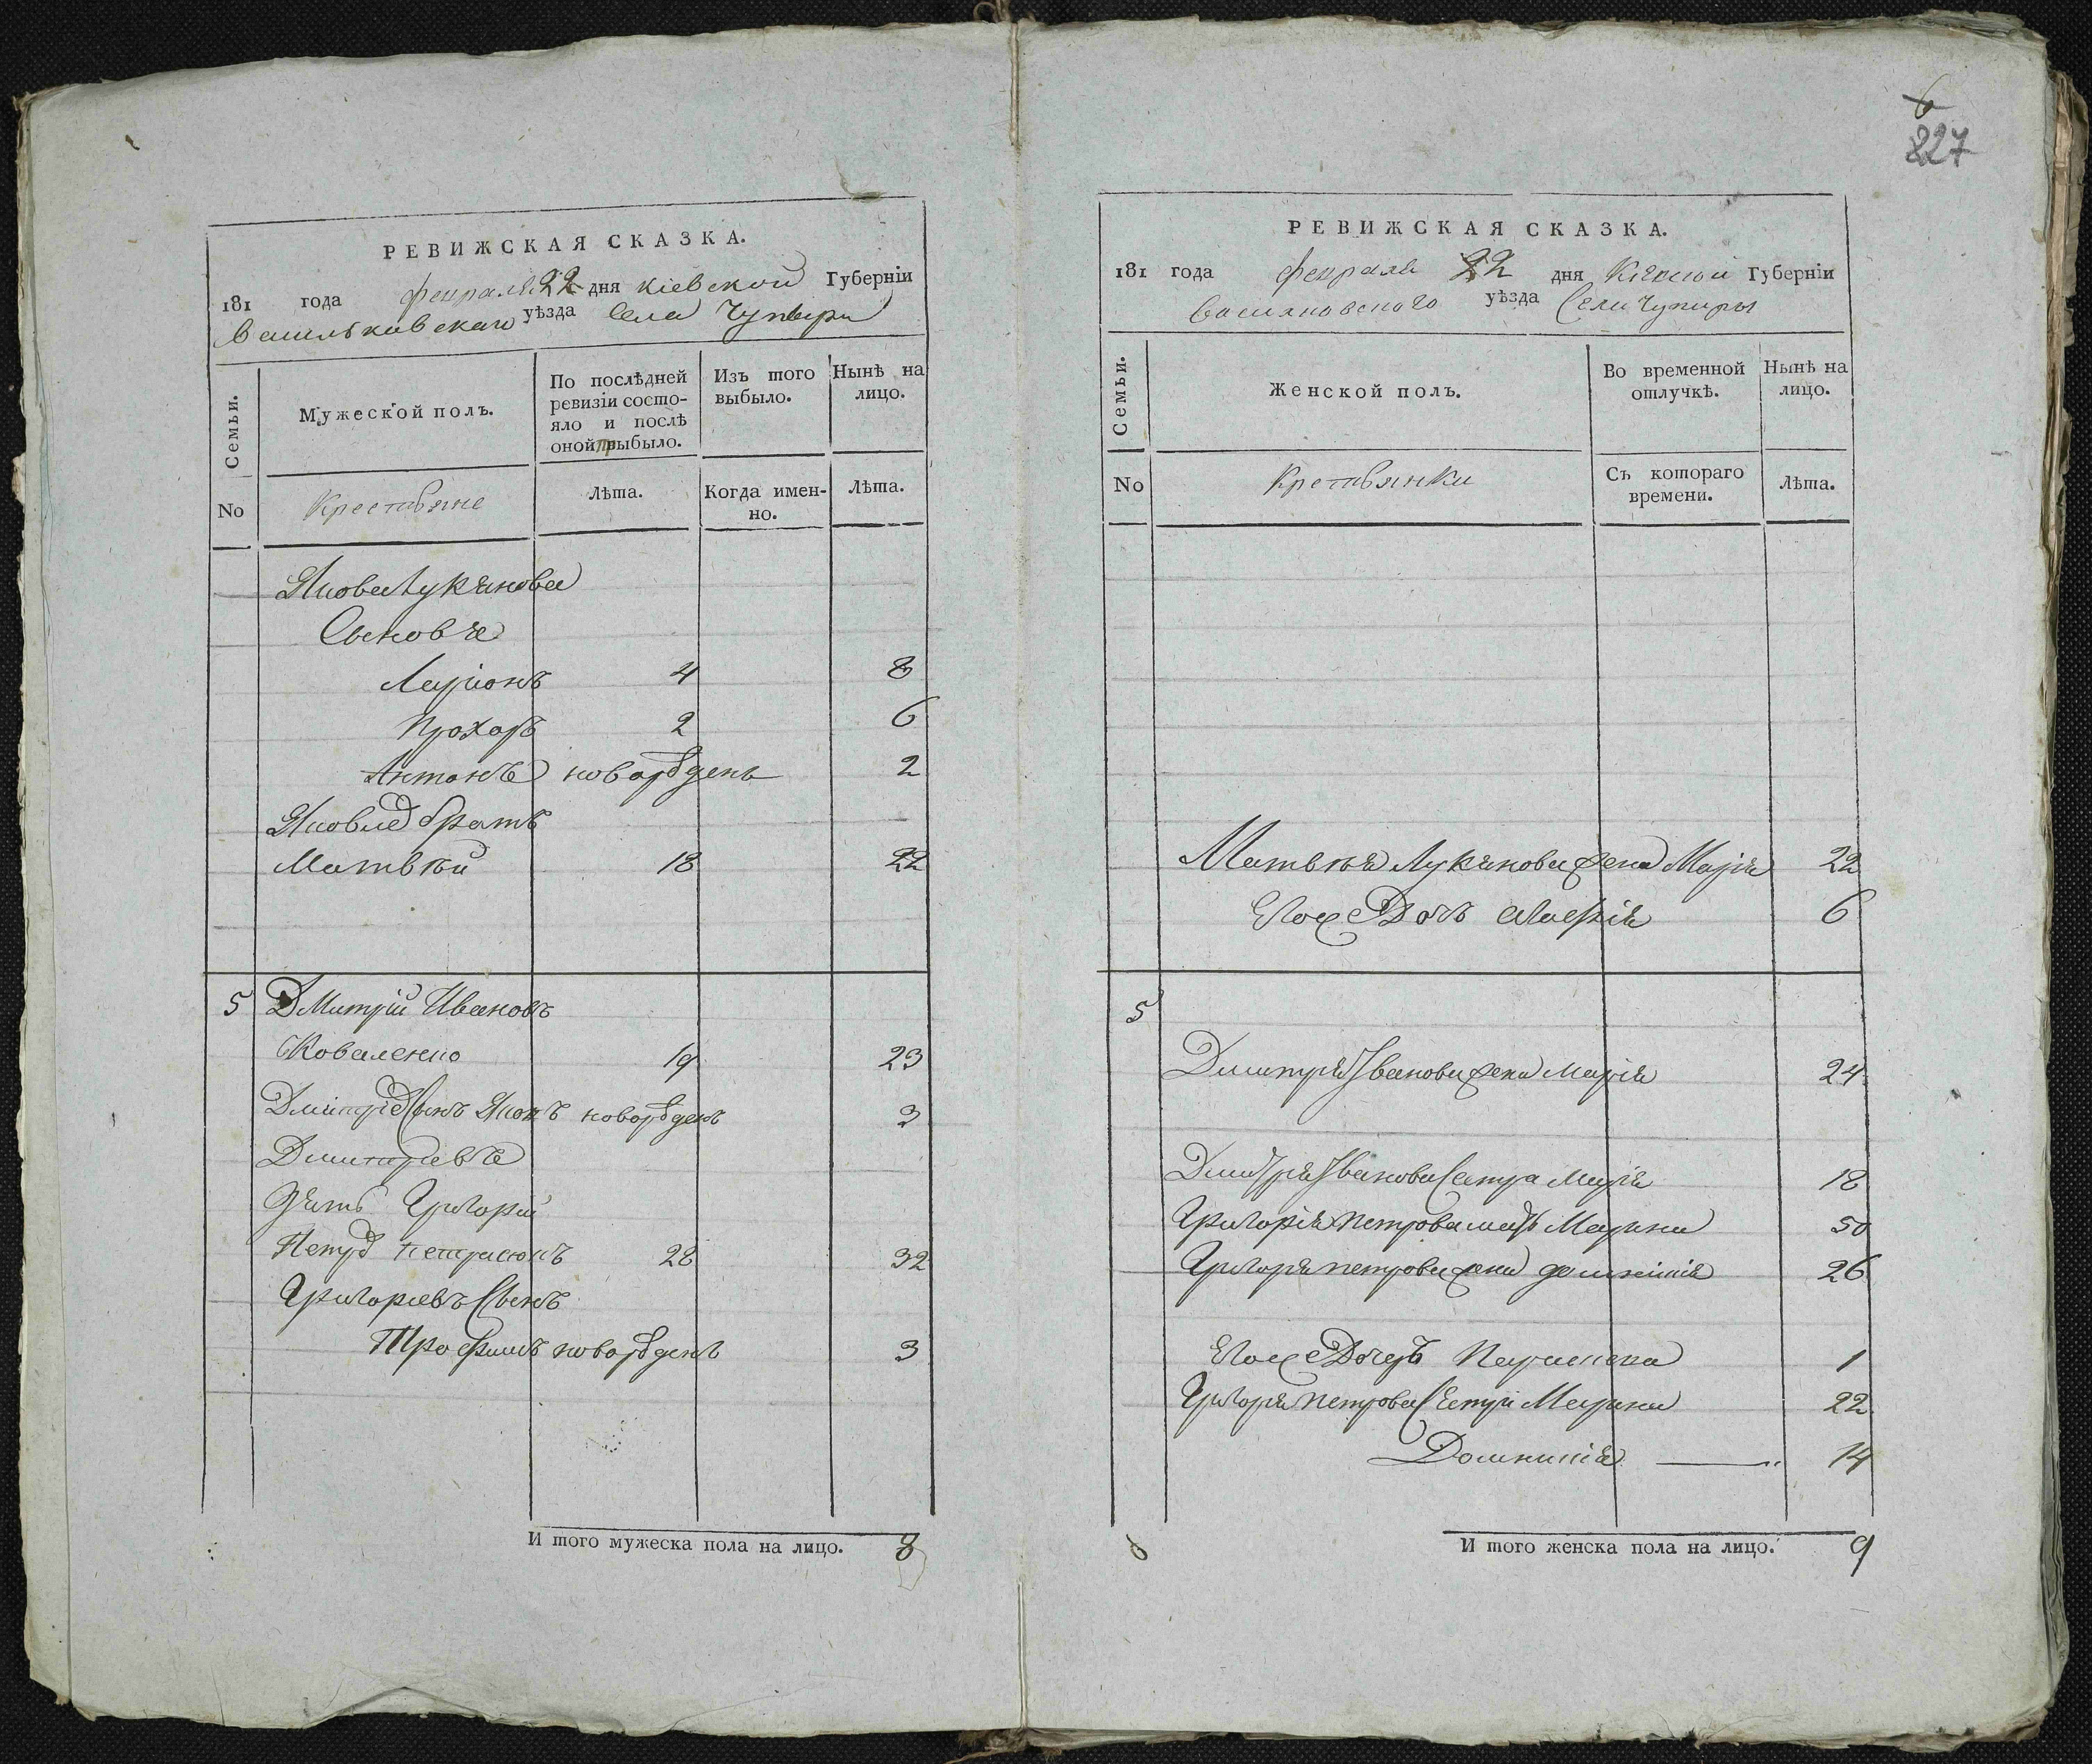 6
827
РЕВИЖСКАЯ СКАЗКА.
181 года февраля 22 дня Кіевской Губерніи
Васильковскаго уѣзда Села Чупыри
Семьи.
Мужеской полъ.
По послѣдней ревизіи состояло и послѣ оной прибыло.
Изъ того выбыло.
Нынѣ на лицо.
No
Крестьяне
Лѣта.
Когда именно.
Лѣта.
Якова Лукянова
Сыновя
Ларіонъ 4 8
Прохоръ 2 6
Антонъ новорожденъ 2
Яковлевъ братъ
Матвѣй 18 22
5 Дмитрій Ивановъ
Коваленко 19 23
Дмитріевъ Сынъ новорожденъ 3
Дмитріевъ
Зять Григорій
Петровъ 28 32
Григоріевъ Сынъ
Трофимъ новорожденъ 3
И того мужеска пола на лицо. 8
РЕВИЖСКАЯ СКАЗКА.
181 года февраля 22 дня Кіевской Губерніи
уѣзда Села Чупыры
Семьи.
Женской полъ.
Во временной отлучкѣ.
Нынѣ на лицо.
No
Крестьянки
Съ котораго времени.
Лѣта.
Матвѣя Лукянова жена Марія 22
Егоже Дочь 6
5
Дмитрія Иванова жена Марія 24
Дмитрія Иванова Сестра Марія 18
Григорія Петрова мать Марина 50
Григорія Петрова жена Домникія 26
Егоже Дочерь Параскева 1
Григорія Петрова Сестри Марина 22
Домникія 14
И того женска пола на лицо. 9